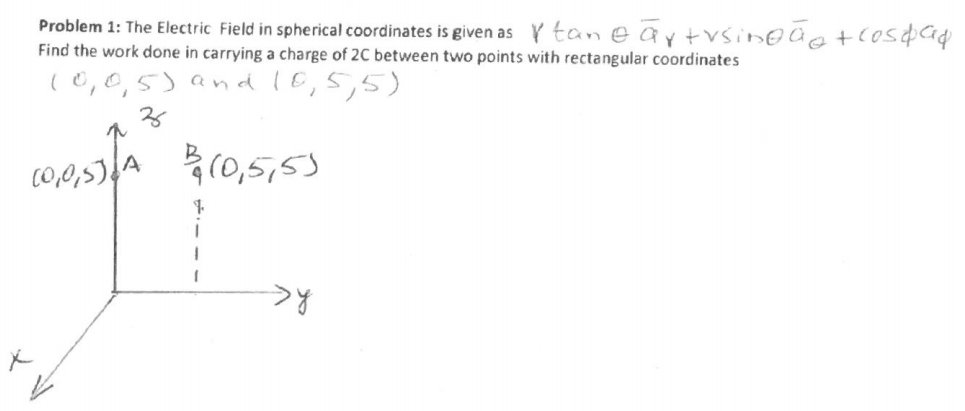 Problem 1: The Electric Field in spherical coordinates is given as r tan θ a̅r + r sinθ a̅θ + cosϕ a̅ϕ
Find the work done in carrying a charge of 2C between two points with rectangular coordinates
(0,0,5) and (0,5,5)
z
(0,0,5) A B (0,5,5)
y
x